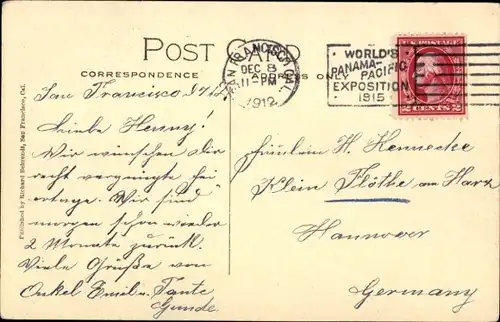 POST
CORRESPONDENCE
ADDRESS ONLY
SAN FRANCISCO, CAL.
DEC 8
11-PM
1912
WORLD'S
PANAMA-PACIFIC
EXPOSITION
1915
U.S. POSTAGE
2 CENTS 2
Published by Richard Behrendt, San Francisco, Cal.
San Francisco
Liebe Henny!
Wir wünschen dir
recht vergnügte Fei
ertage. Wir sind
morgen schon wieder
2 Monate zurück.
Viele Grüße von
Onkel Emil u. Tante
Gunde
Fräulein H. Hennecke
Klein Flöthe am Harz
Hannover
Germany